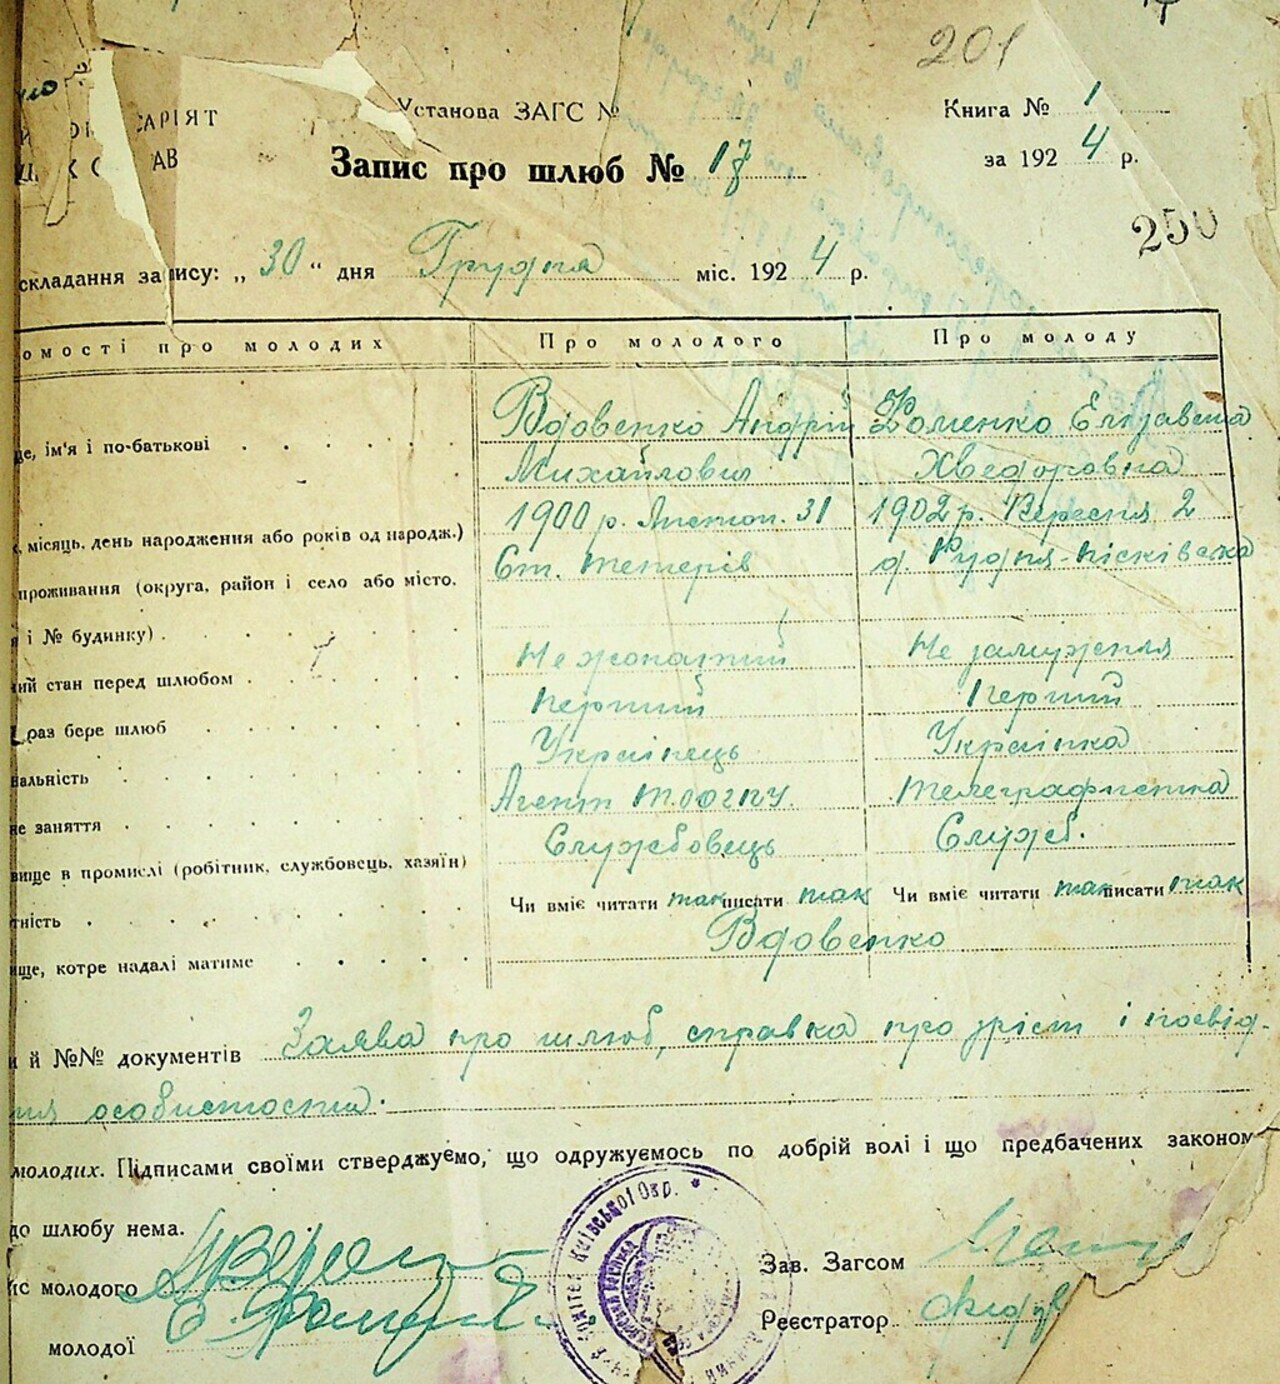 201
САРІЯТ Установа ЗАГС № Книга № 1
АВ Запис про шлюб № 17 за 1924 р.
250
складання запису: „30“ дня Грудня міс. 1924 р.
омості про молодих Про молодого Про молоду
Вдовенко Андрій Фоменко Елизавета
ще, ім'я і по-батькові Михайлович Хведоровна
1900 р. Листоп. 31 1902 р. Вересня 2
місяць, день народження або років од народж.) Ст. Тетерів д. Рудня-пісківська
проживання (округа, район і село або місто,
і № будинку)
Не жонатий Не замужня
ий стан перед шлюбом
перший перший
раз бере шлюб
Українець Українка
нальність
Агент Т.О.ОГПУ. телеграфистка
не заняття
Службовець Служб.
вище в промислі (робітник, службовець, хазяїн)
Чи вміє читати так писати так Чи вміє читати так писати так
тність
Вдовенко
ище, котре надалі матиме
и й №№ документів Заява про шлюб, справка про зріст і посвід-
ня особистости.
молодих. Підписами своїми стверджуємо, що одружуємось по добрій волі і що предбачених законом
до шлюбу нема.
Київської Окр.
ис молодого Зав. Загсом
молодої Реєстратор